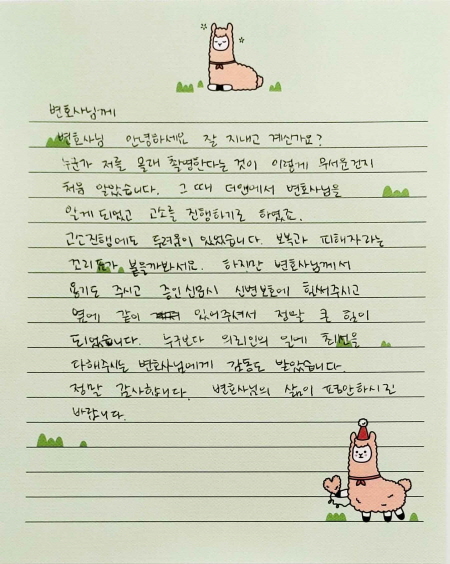 변호사님께
변호사님 안녕하세요 잘 지내고 계신가요?
누군가 저를 몰래 촬영한다는 것이 이렇게 무서운건지
처음 알았습니다. 그 때 더앤에서 변호사님을
알게 되었고 고소를 진행하기로 하였죠.
고소진행에도 두려움이 있었습니다. 보복과 피해자라는
꼬리표가 붙을까봐서요. 하지만 변호사님께서
용기도 주시고 증인신문시 신변보호에 힘써주시고
옆에 같이 있어주셔서 정말 큰 힘이
되었습니다. 누구보다 의뢰인의 일에 최선을
다해주시는 변호사님에게 감동도 받았습니다.
정말 감사합니다. 변호사님의 삶이 평안하시길
바랍니다.